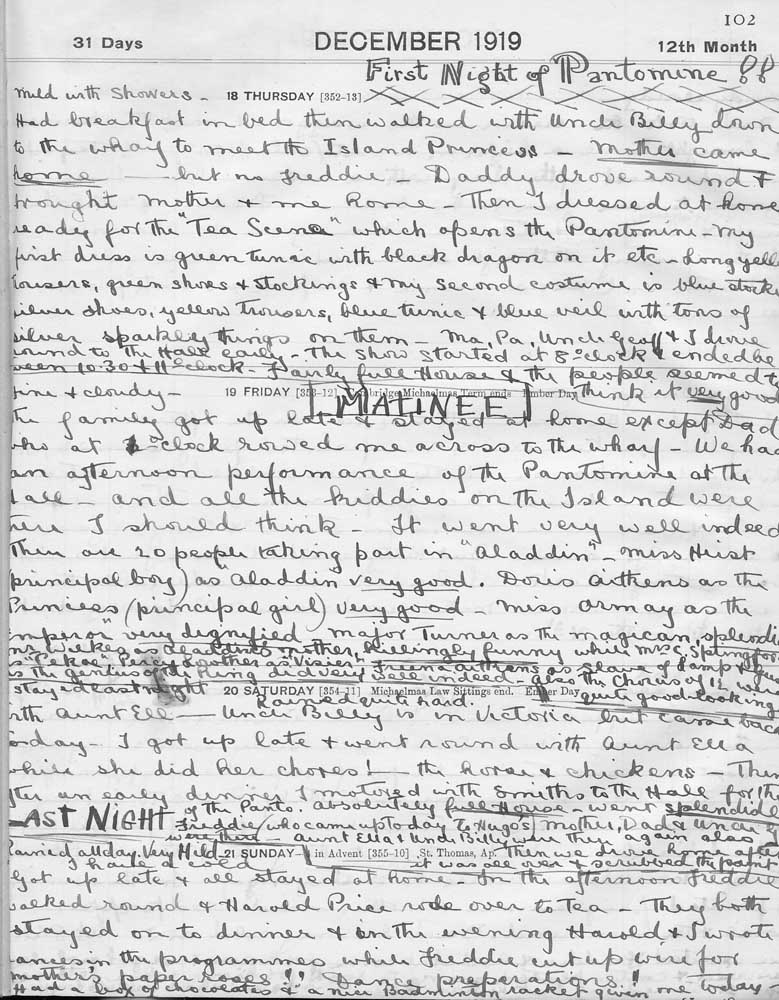 102
31 Days DECEMBER 1919 12th Month
First Night of Pantomine !!
Mild with Showers - 18 THURSDAY [352-13]
Had breakfast in bed then walked with Uncle Billy down
to the wharf to meet the Island Princess - Mother came
home - but no Freddie - Daddy drove round &
brought Mother & me home - Then I dressed at home
ready for the "Tea Scene" which opens the Pantomine - My
first dress is green tunic with black dragon on it etc - long yell
trousers, green shoes & stockings & my second costume is blue stock
silver shoes, yellow trousers, blue tunic & blue veil with tons of
silver sparkley things on them - Ma, Pa, Uncle Geoff & I drove
round to the Hall early - The show started at 8 o'clock & ended be
ween 10:30 & 11 o'clock - Fairly full House & the people seemed to
think it very good
Fine & cloudy - 19 FRIDAY [353-12] Cambridge Michaelmas Term ends Ember Day
MATINEE
The family got up late & stayed at home except Dad
who at o'clock rowed me across to the wharf - We had
an afternoon performance of the Pantomine at the
Hall - and all the kiddies on the Island were
there I should think - It went very well indeed
There are 20 people taking part in "Aladdin" - Miss Hirst
(principal boy) as "Aladdin" very good. Doris Aitkens as the
Princess (principal girl) very good - Miss Ormay as the
Emperor very dignified - Major Turner as the magican, splendi
Mr Wilkes as Aladdin's mother, killingly funny while Mrs C. Springfor
as "Pekoe", as "Visier" aitkens as slave of Lamp &
as the genius of the Ring did very well indeed - also the Chorus of 12 were
quite good looking
stayed last night 20 SATURDAY [354-11] Michaelmas Law Sittings end. Ember Day
Rained quite hard.
with Aunt Ell - Uncle Billy is in Victoria but came back
today - I got up late & went round with Aunt Ella
while she did her chores! - the horse & chickens - Then
after an early dinner I motored with Smiths to the Hall for the
LAST NIGHT of the Panto. Absolutely full House - went splendidl
Freddie (who came up today to Hugo's) Mother, Dad & Uncle
were there - Aunt Ella & Uncle Billy were there again also
Then we drove home after
Rained all day. Very Mild 21 SUNDAY - 4 in Advent [355-10] St. Thomas, Ap.
I have a cold it was all over & scrubbed the paint
Got up late & all stayed at home - In the afternoon Freddie
walked round & Harold Price rode over to Tea - They both
stayed on to dinner & in the evening Harold & I wrote
dances in the programmes while Freddie cut up wire for
Mother's paper roses !! Dance preparations!
Had a box of chocolates & a nice Badminton racket given me today -